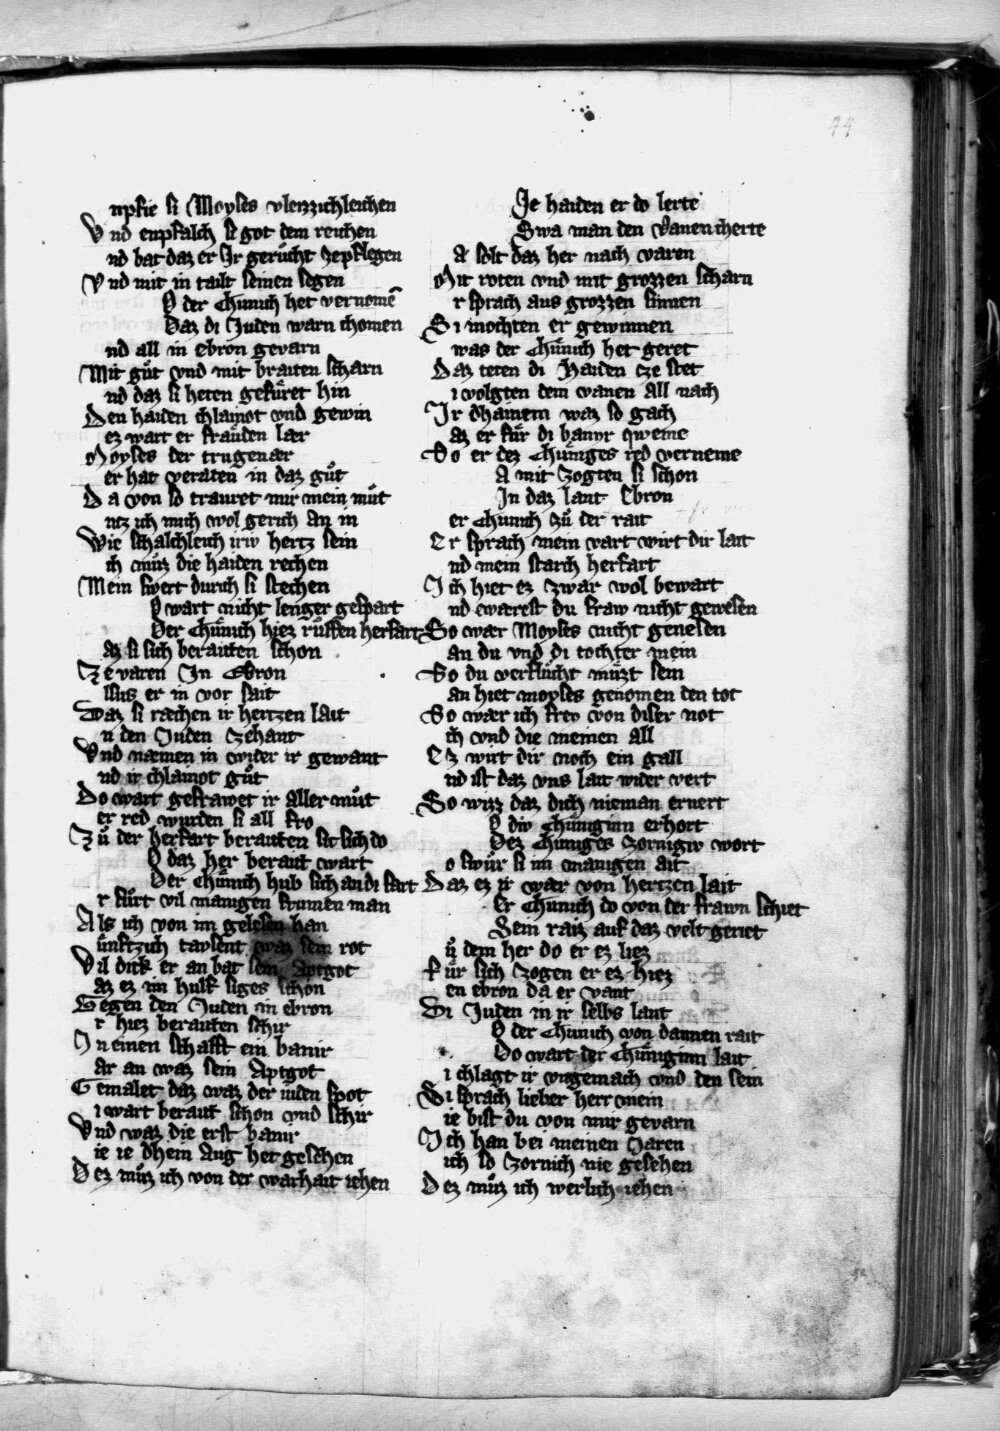 44
npfie si Moyses vleizzichleichen
Vnd enpfalch si got dem reichen
nd bat daz er Ir gerůcht zepflegen
Vnd mit in tailt seinen segen
O der Chunich het vernomē
Daz di Juden warn chomen
nd all in ebron gevarn
Mit gůt vnd mit braiten scharn
nd daz si heten gefůret hin
Den haiden chlainot vnd gewin
ez wart er fraůden lær
Moyses der trugenær
er hat veraten in daz gůt
Da von so trauret mir mein můt
ntz ich mich wol gerich an in
Wie schalchleich irw hertz sein
ich můz die haiden rechen
Mein swert durch si stechen
O wart nicht lenger gespart
Der Chůnich hiez růffen herfart
az si sich beraiten schon
Ze varen In Ebron
llus er in vor sait
Daz si ræchen ir hertzen lait
n den Juden zehant
Vnd næmen in wider ir gewant
nd ir chlainot gůt
Do wart gefrawet ir aller můt
er red wurden si all fro
Zů der herfart beraiten sie sich do
O daz her berait wart
Der Chůnich hub sich an di fart
r fůrt vil manigen frumen man
Als ich von im gelesen han
ůnftzich tausent waz sein rot
Vil dick er an bat sein Aptgot
az ez im hulf siges schon
Gegen den Juden in ebron
r hiez beraiten schir
In einen schafft ein banir
ar an waz sein Aptgot
Gemalet daz waz der iuden spot
i wart berait schon vnd schir
Vnd waz die erst banir
ie ie dhein aug het gesehen
Dez můz ich von der warhait iehen
Je haiden er do lerte
Swa man den vanen cherte
A solt daz her nach varen
Mit roten vnd mit grozzen scharn
r sprach aus grozzen sinnen
Si mochten er gewinnen
was der Chůnich het geret
Daz teten di Haiden cze stet
i volgten dem vanen all nach
Ir dhainem waz so gach
az er fůr di banyr qweme
Do er dez Chůniges red verneme
A mit Zogten si schon
In daz lant Ebron
er Chunich zů der rait
Er sprach mein vart wirt dir lait
nd mein starch herfart
Ich hiet ez zwar wol bewart
nd wærest du fraw nicht gewesen
So wær Moyses nicht genesen
an du vnd di tochter mein
So du verflůcht můzt sein
an hiet moyses genomen den tot
So wær ich frey von diser not
ich vnd die meinen all
Ez wirt dir noch ein gall
nd ist daz vns lait wider vert
So wizz daz dich nieman ernert
O div Chůniginn erhort
Dez Chuniges zornigiv wort
o swůr si im manigen ait
Daz ez ir wær von hertzen lait
Er Chunich do von der frawn schiet
Sein raiz auf daz velt geriet
ů dem her do er ez liez
Fůr sich zogen er ez hiez
en ebron da er vant
Di Juden in ir selbs lant
O der Chunich von dannen rait
Do wart der Chůniginn lait
i chlagt ir vngemach vnd den sein
Si sprach lieber herr mein
ie bist du von mir gevarn
Ich han bei meinen Jaren
ich so zornich nie gesehen
Dez můz ich werlich iehen